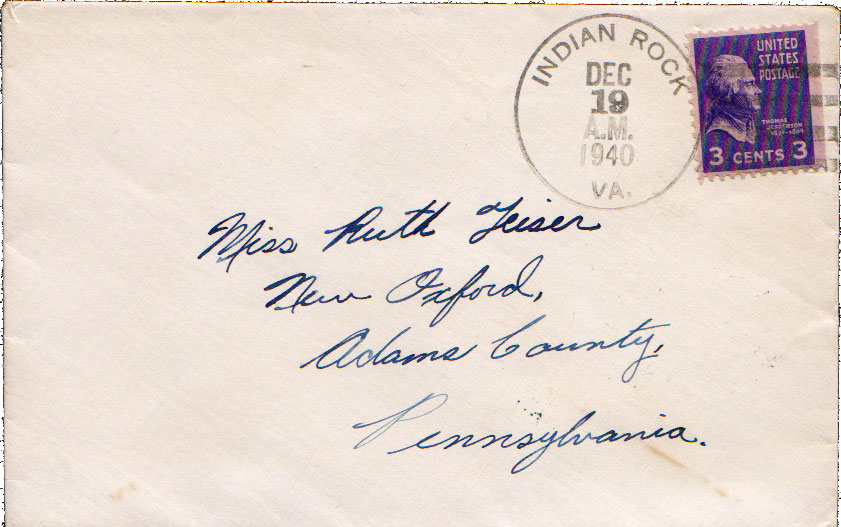 INDIAN ROCK
DEC
19
A.M.
1940
VA.
UNITED
STATES
POSTAGE
THOMAS
JEFFERSON
1801-1809
3 CENTS 3
Miss Ruth Zeiser
New Oxford,
Adams County,
Pennsylvania.